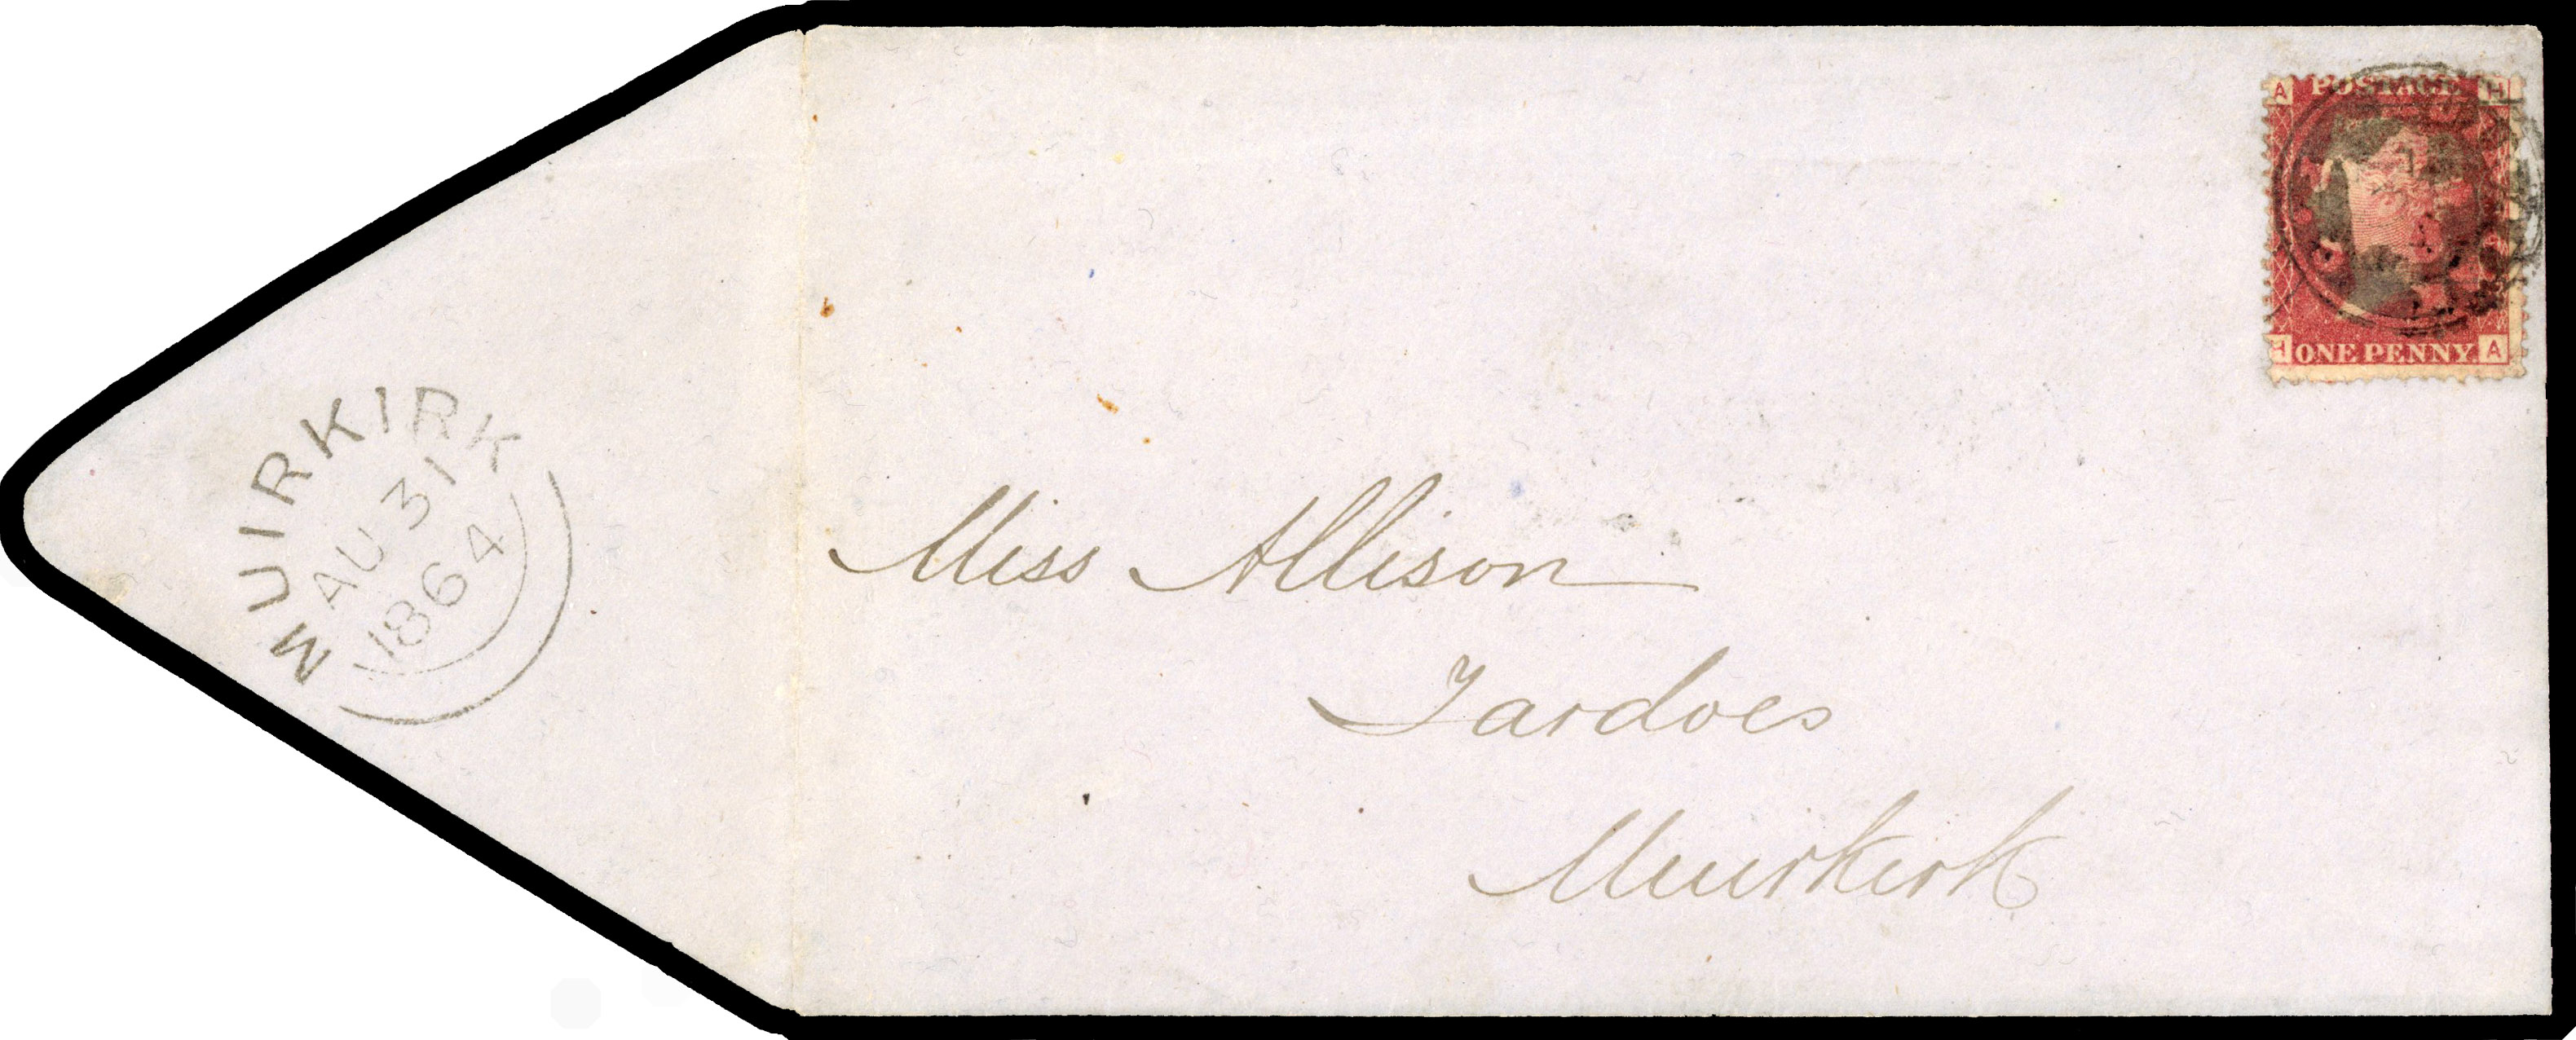 MUIRKIRK
AU 31
1864
Miss Allison
Tardoes
Muirkirk
A POSTAGE H
H ONE PENNY. A